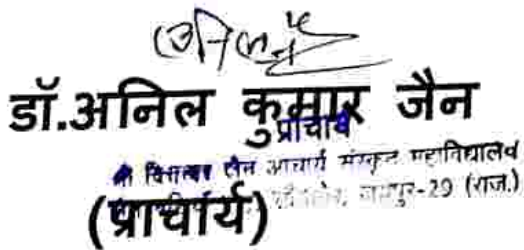 डॉ.अनिल कुमार जैन
प्राचार्य
श्री दिगम्बर जैन आचार्य संस्कृत महाविद्यालय
जयपुर-29 (राज.)
(प्राचार्य)